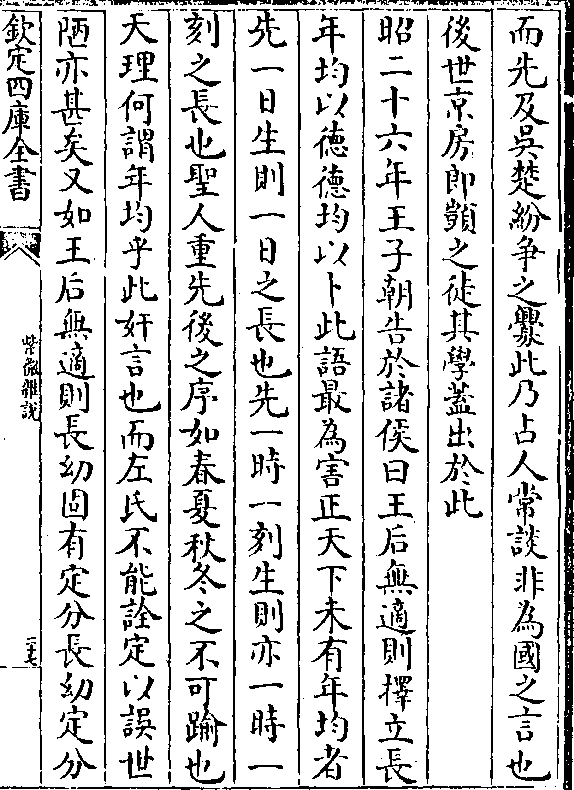 而先及吳楚紛争之釁此乃占人常談非為國之言也
後世京房郎顗之徒其學蓋出於此
昭二十六年王子朝告於諸侯曰王后無適則擇立長
年均以德德均以卜此語最為害正天下未有年均者
先一日生則一日之長也先一時一刻生則亦一時一
刻之長也聖人重先後之序如春夏秋冬之不可踰也
天理何謂年均乎此奸言也而左氏不能詮定以誤世
陋亦甚矣又如王后無適則長幼固有定分長幼定分
欽定四庫全書
紫微雜說
二十七